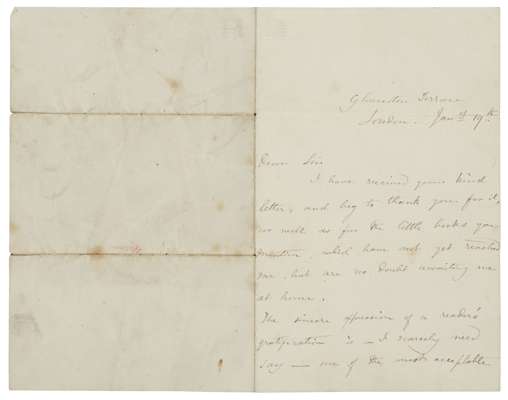 Gloucester Terrace
London. Jany 19th
Dear Sir
I have received your kind
letter, and beg to thank you for it,
as well as for the little books you
mention, which have not yet reached
me, but are no doubt awaiting me
at home.
The sincere expression of a reader's
gratification is — I scarcely need
say — one of the most acceptable